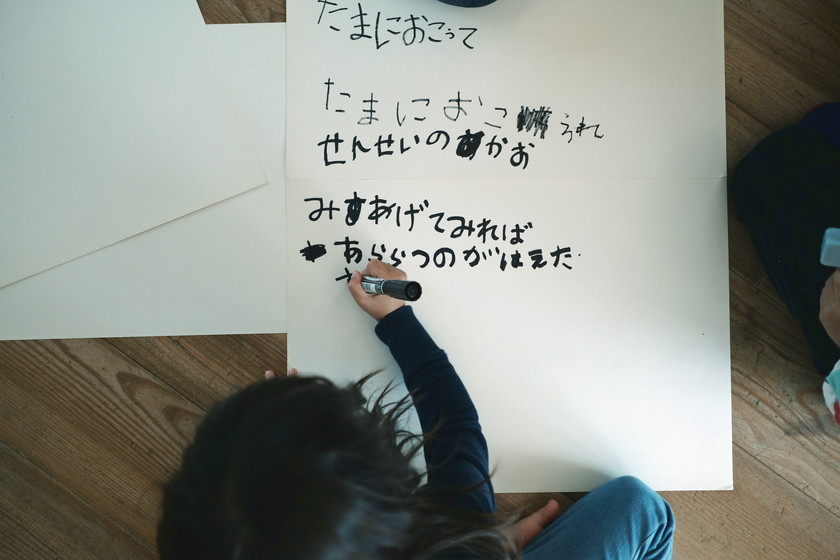 たまにおこって
たまにおこ られて
せんせいのかお
みあげてみれば
あららつのがはえた